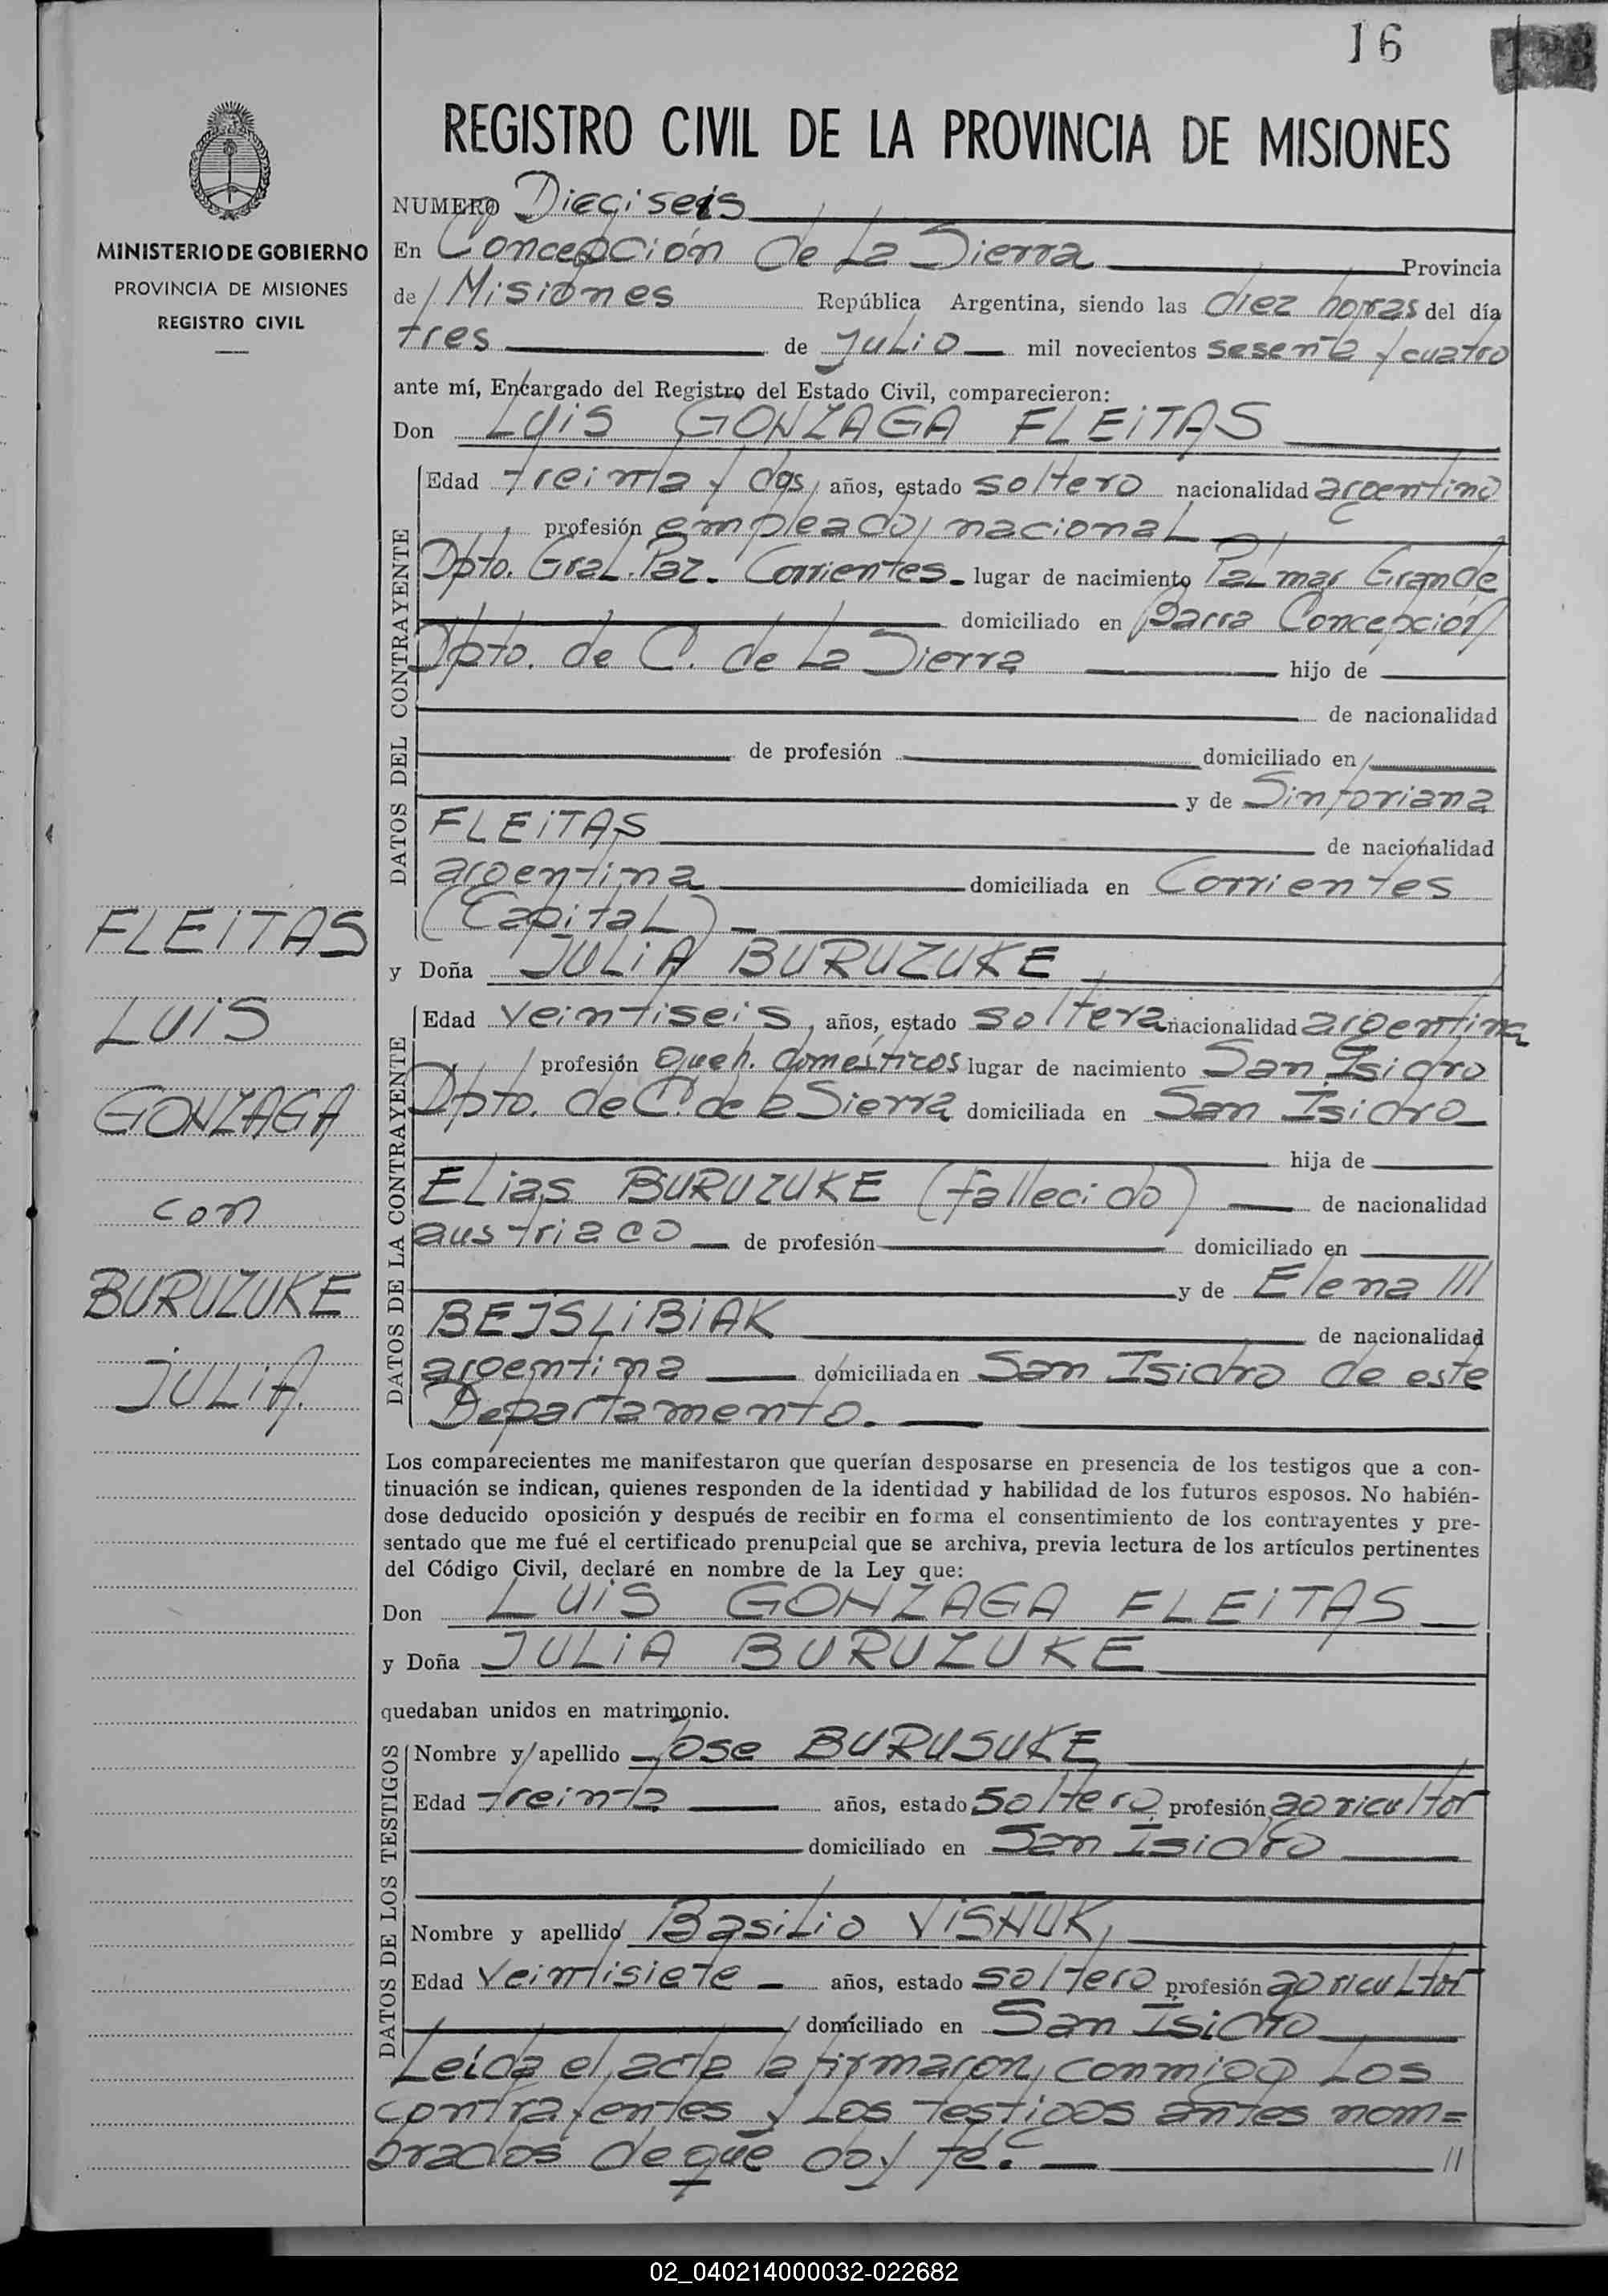 16
REGISTRO CIVIL DE LA PROVINCIA DE MISIONES
MINISTERIO DE GOBIERNO
PROVINCIA DE MISIONES
REGISTRO CIVIL
NUMERO Dieciseis
En Concepción de La Sierra Provincia
de Misiones República Argentina, siendo las diez horas del día
tres de Julio mil novecientos sesenta y cuatro
ante mí, Encargado del Registro del Estado Civil, comparecieron:
Don LUIS GONZAGA FLEITAS
DATOS DEL CONTRAYENTE
Edad treinta y dos, años, estado soltero nacionalidad argentino
profesión empleado nacional
Dpto. Gral. Paz. Corrientes lugar de nacimiento Palmar Grande
domiciliado en Barra Concepción
Dpto. de C. de La Sierra hijo de
de nacionalidad
de profesión domiciliado en
y de Sinforiana
FLEITAS de nacionalidad
argentina domiciliada en Corrientes
(Capital)
y Doña JULIA BURUZUKE
DATOS DE LA CONTRAYENTE
Edad veintiseis, años, estado soltera nacionalidad argentina
profesión queh. domésticos lugar de nacimiento San Isidro
Dpto. de C. de la Sierra domiciliada en San Isidro
hija de
Elias BURUZUKE (fallecido) de nacionalidad
austriaco de profesión domiciliado en
y de Elena ///
BEJSLIBIAK de nacionalidad
argentina domiciliada en San Isidro de este
Departamento.
FLEITAS
LUIS
GONZAGA
con
BURUZUKE
JULIA.
Los comparecientes me manifestaron que querían desposarse en presencia de los testigos que a con-
tinuación se indican, quienes responden de la identidad y habilidad de los futuros esposos. No habién-
dose deducido oposición y después de recibir en forma el consentimiento de los contrayentes y pre-
sentado que me fué el certificado prenupcial que se archiva, previa lectura de los artículos pertinentes
del Código Civil, declaré en nombre de la Ley que:
Don LUIS GONZAGA FLEITAS
y Doña JULIA BURUZUKE
quedaban unidos en matrimonio.
DATOS DE LOS TESTIGOS
Nombre y apellido Jose BURUSUKE
Edad treinta años, estado soltero profesión agricultor
domiciliado en San Isidro
Nombre y apellido Basilio VISÑUK,
Edad veintisiete años, estado soltero profesión agricultor
domiciliado en San Isidro
Leída el acta la firmaron conmigo los
contrayentes y los testigos antes nom=
brados de que doy fé. //
02_040214000032-022682